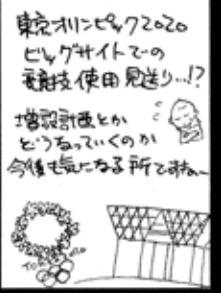 東京オリンピック2020
ビッグサイトでの
競技使用見送り…!?
増設計画とか
どうなっていくのか
今後も気になる所ですねぇ〜